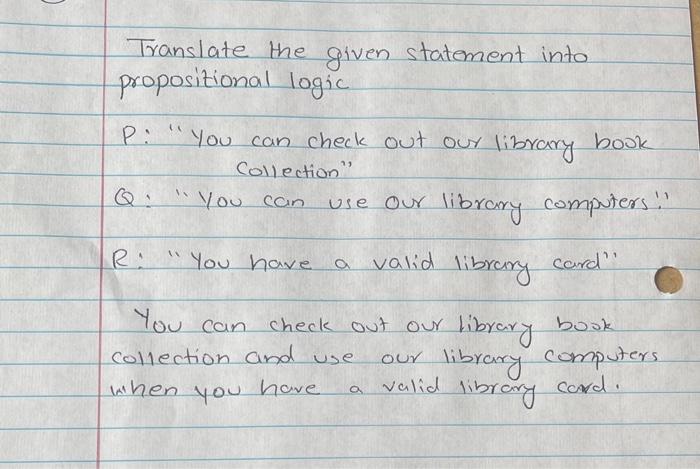 Translate the given statement into
propositional logic
P: "You can check out our library book
Collection"
Q: "You can use our library computers!"
R: "You have a valid library card"
You can check out our library book
collection and use our library computers
when you have a valid library card.